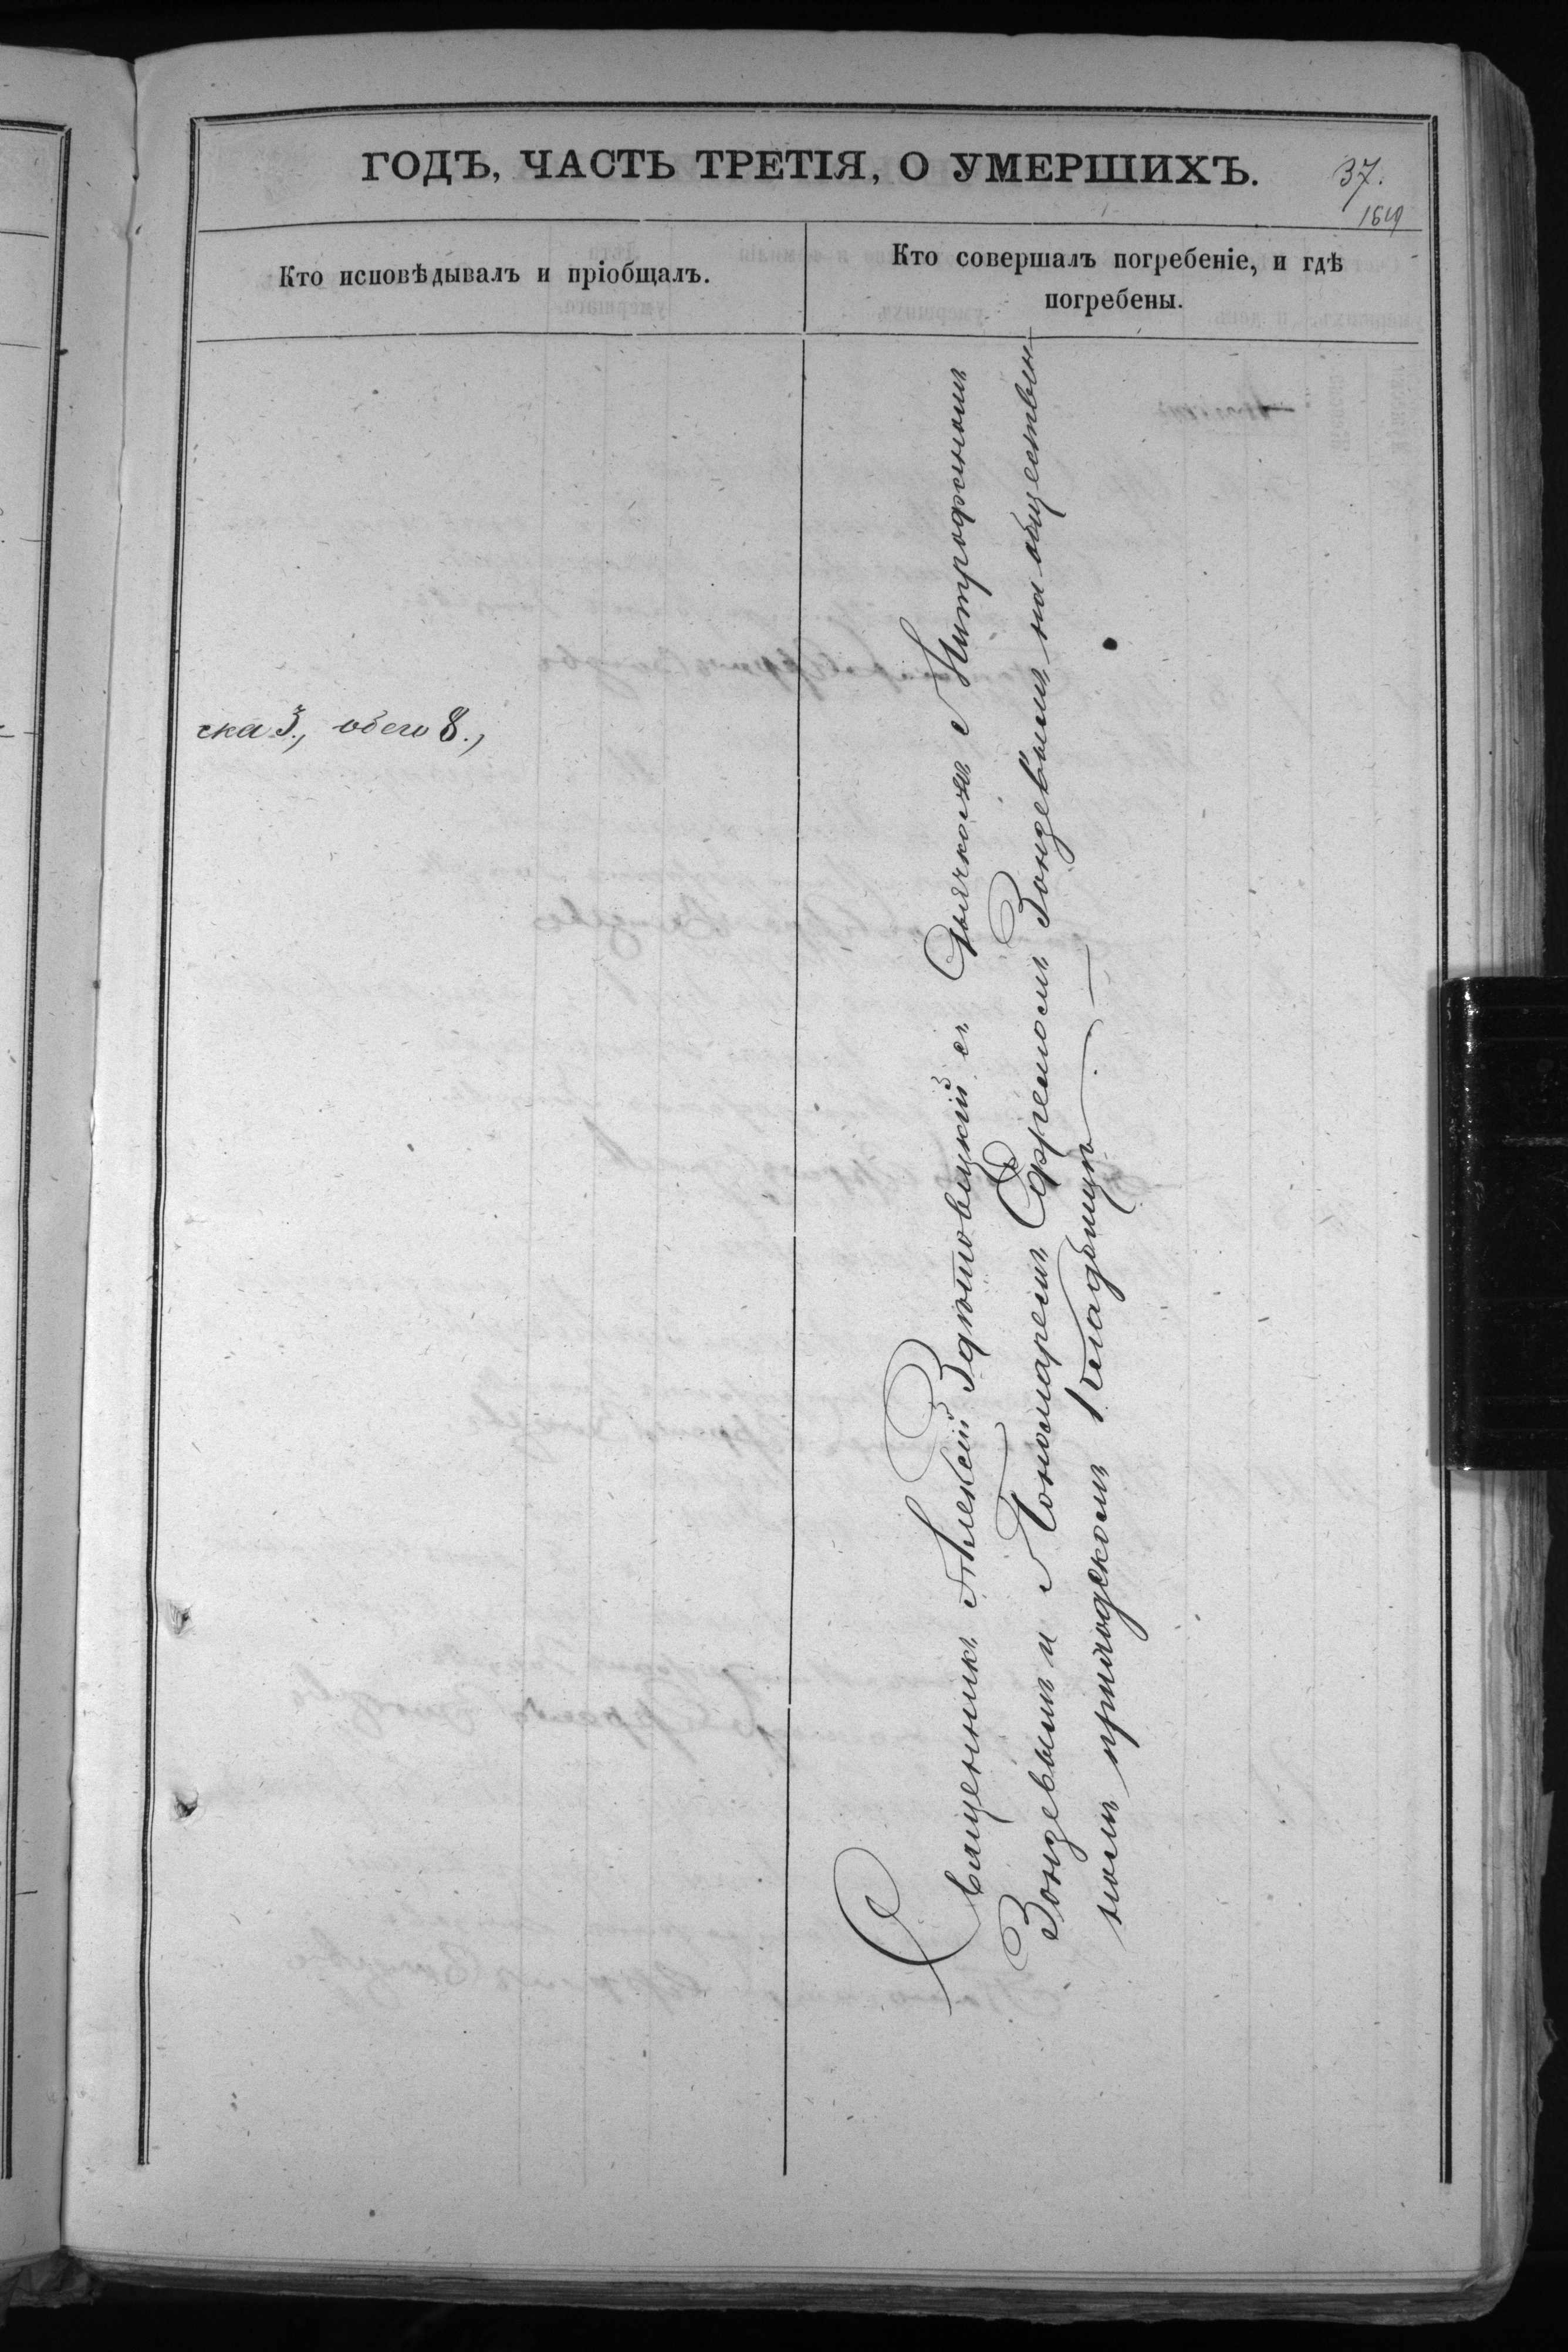 ГОДЪ, ЧАСТЬ ТРЕТІЯ, О УМЕРШИХЪ.
37.
Кто исповѣдывалъ и пріобщалъ.
Кто совершалъ погребеніе, и гдѣ
погребены.
ска 3., обего 8.,
Священникъ Алексій Здѣтовецкій съ Дьячкомъ Митрофаномъ
Зондевымъ и Пономаремъ Ефремомъ Зондевымъ на обществен
номъ приходскомъ кладбищѣ.